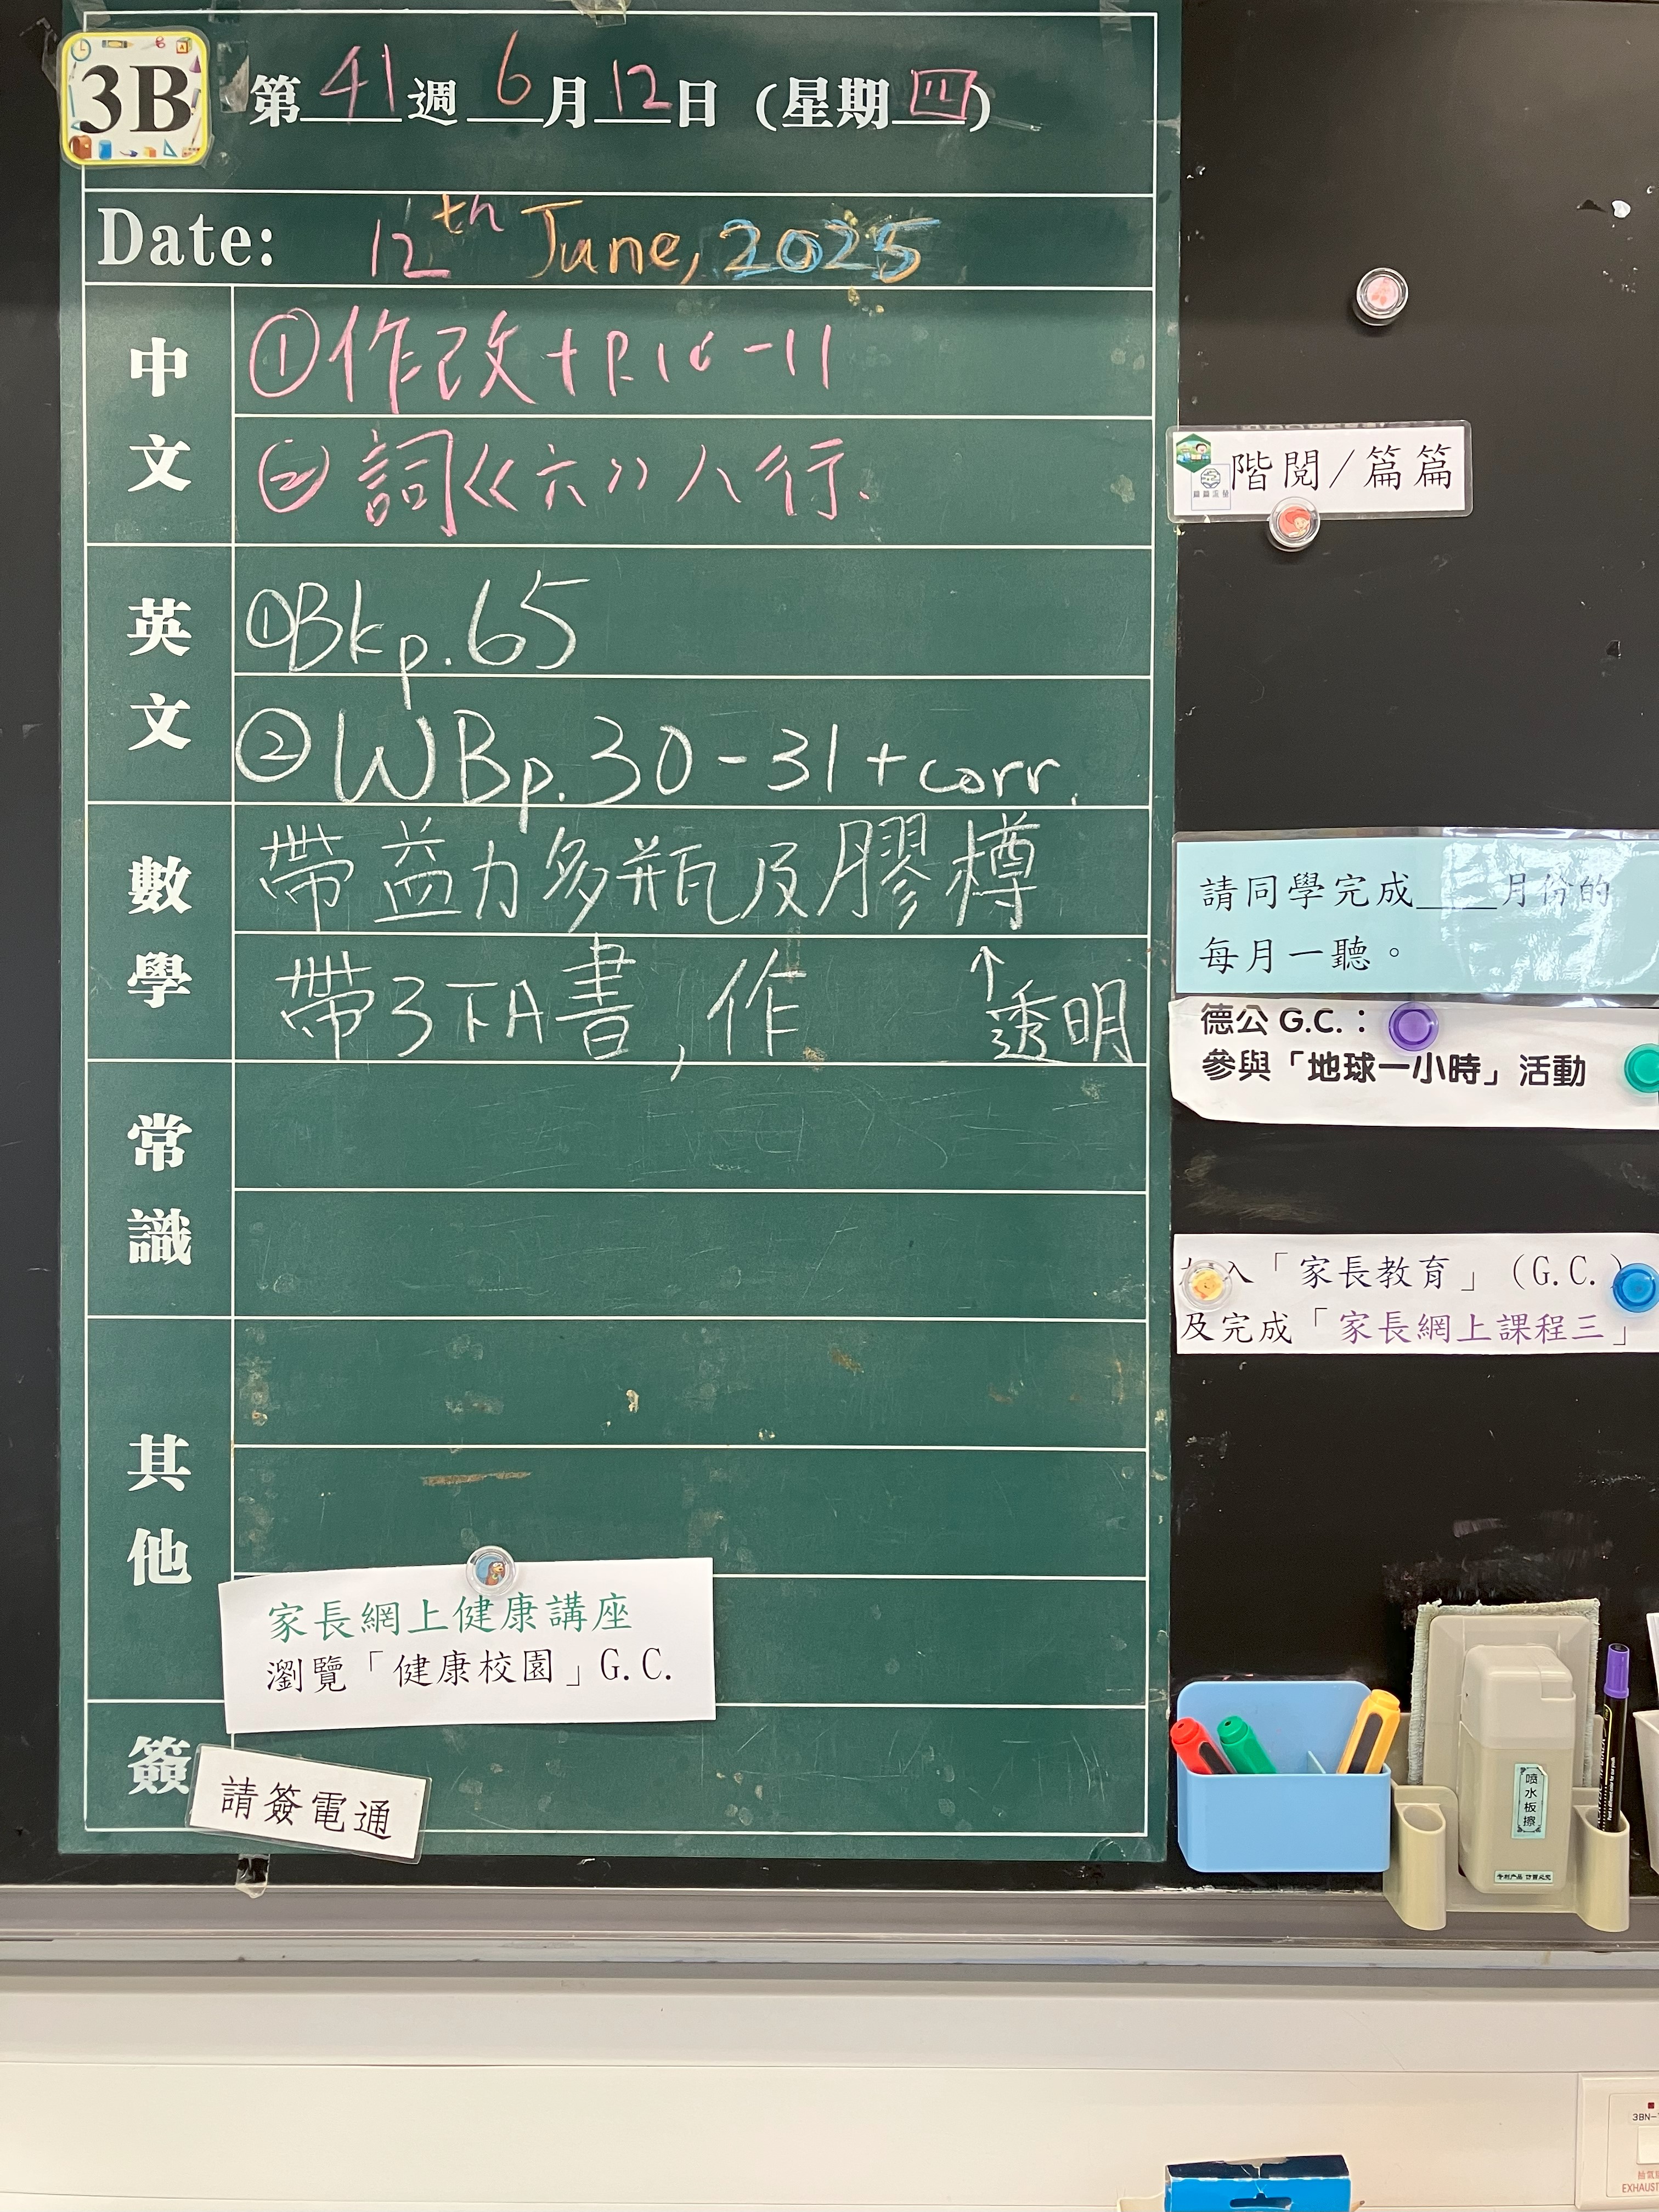 3B
第41週 6月12日 (星期四)
Date: 12th June, 2025
中文
①作改+P.10-11
②詞《六》八行.
英文
①Bk p.65
②WB p.30-31+corr.
數學
帶益力多瓶及膠樽
帶3下A書,作
↑
透明
常識
其他
家長網上健康講座
瀏覽「健康校園」G.C.
簽
請簽電通
階閱/篇篇
篇篇流螢
請同學完成____月份的
每月一聽。
德公 G.C.：
參與「地球一小時」活動
入「家長教育」(G.C.)
及完成「家長網上課程三」
喷水板擦
专利产品 仿冒必究
3BN-
抽氣
EXHAUST